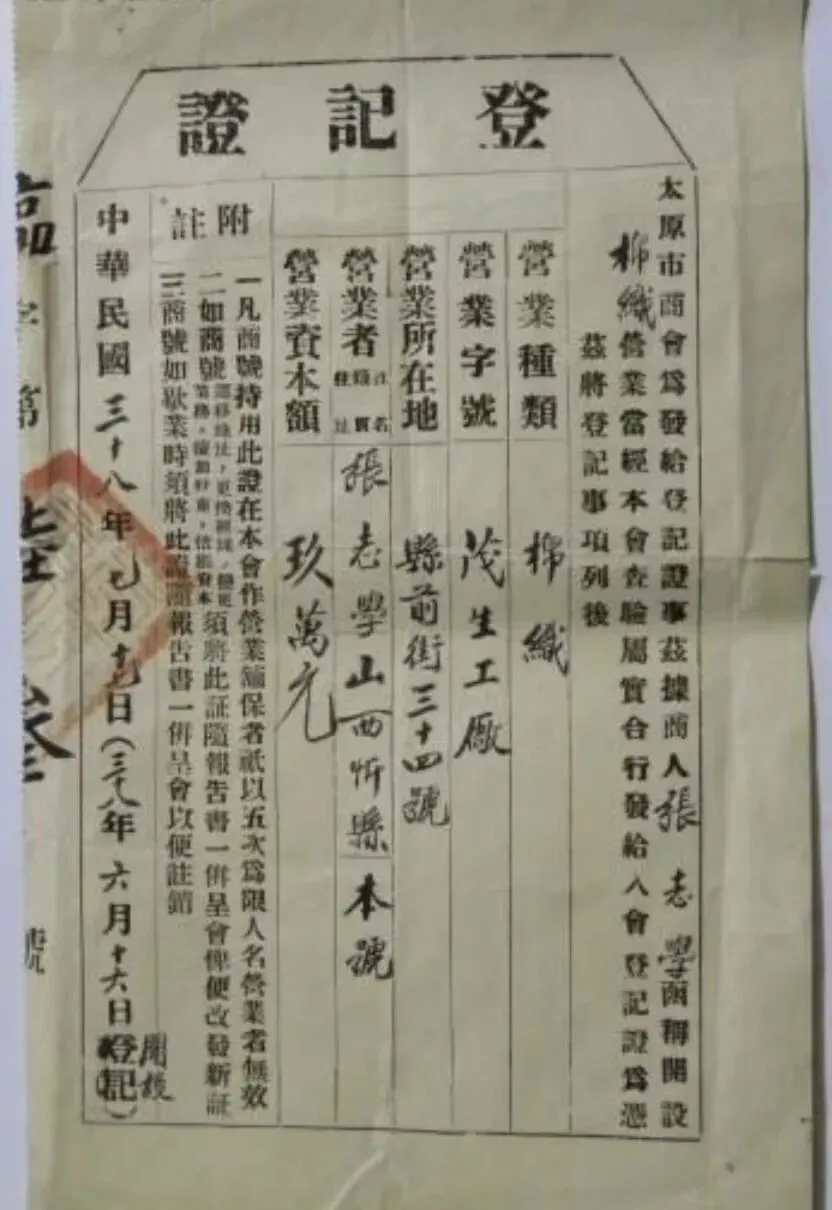 登記證
太原市商會爲發給登記證事茲據商人張志學函稱開設
棉織營業當經本會查驗屬實合行發給入會登記證爲憑
茲將登記事項列後
營業種類 棉織
營業字號 茂生工廠
營業所在地 縣前街三十四號
營業者 張志學 山西忻縣 本號
營業資本額 玖萬元
附註
一凡商號持用此證在本會作營業舖保者祇以五次爲限人名營業者無效
二如商號 須將此証隨報告書一併呈會俾便改發新証
三商號如歇業時須將此證隨報告書一併呈會以便註銷
中華民國三十八年元月十七日(三十八年六月十六日登記)
臨字第 號